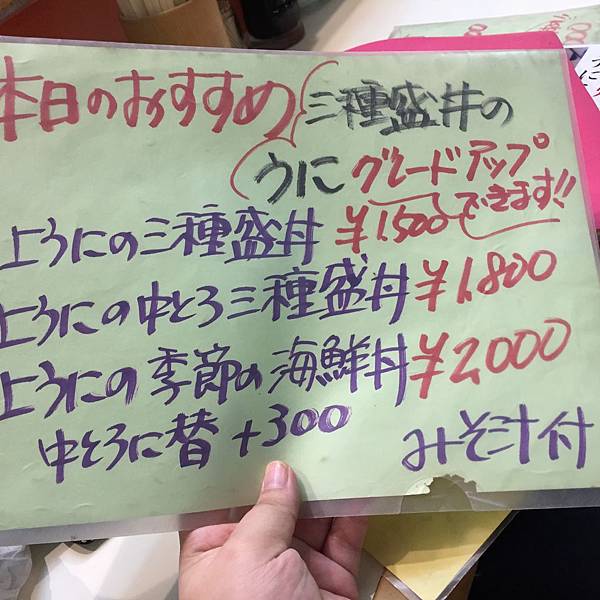 本日のおすすめ
三種盛丼の
うにグレードアップ
できます!!
上うにの三種盛丼 ¥1,500
上うにの中とろ三種盛丼 ¥1,800
上うにの季節の海鮮丼 ¥2,000
中とろに替 +300
みそ汁付